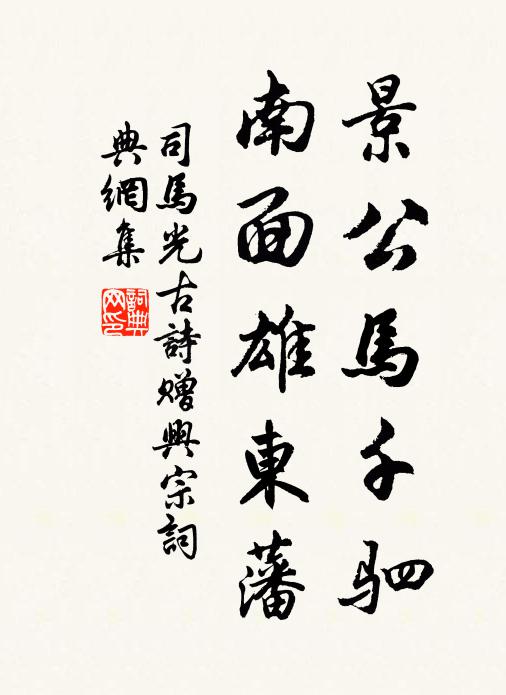 景公馬千驷
南面雄東藩
司馬光古詩贈興宗詞
典網集
詞典
网印